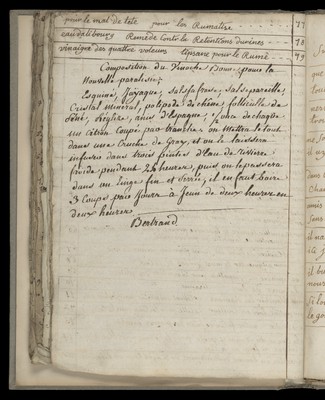 pour le mal de tête pour les Rumatisse 77
eau dalibourg Remède Contre les Retentions d'urines 78
vinaigre des quattre voleurs tipsane pour le Rume 79
Composition du pour la
Nouvelle
Esquine, Gayaque, Salsafrase, Salseparelle,
Cristal mineral, polipode de chêne, follicules de
Séné, réglisse, anis d'Espagne, 1/2 once de chaque
un citron Coupé par tranche. on Mettra le tout
dans une Cruche de Gray, et on le laissera
infuser dans trois pintes d'Eau de Rivière
froide pendant 24 heures, puis on le passera
dans un linge fin et Serré, il en faut boire
3 Coups par jours à Jeun de deux heures en
deux heures
Bertrand